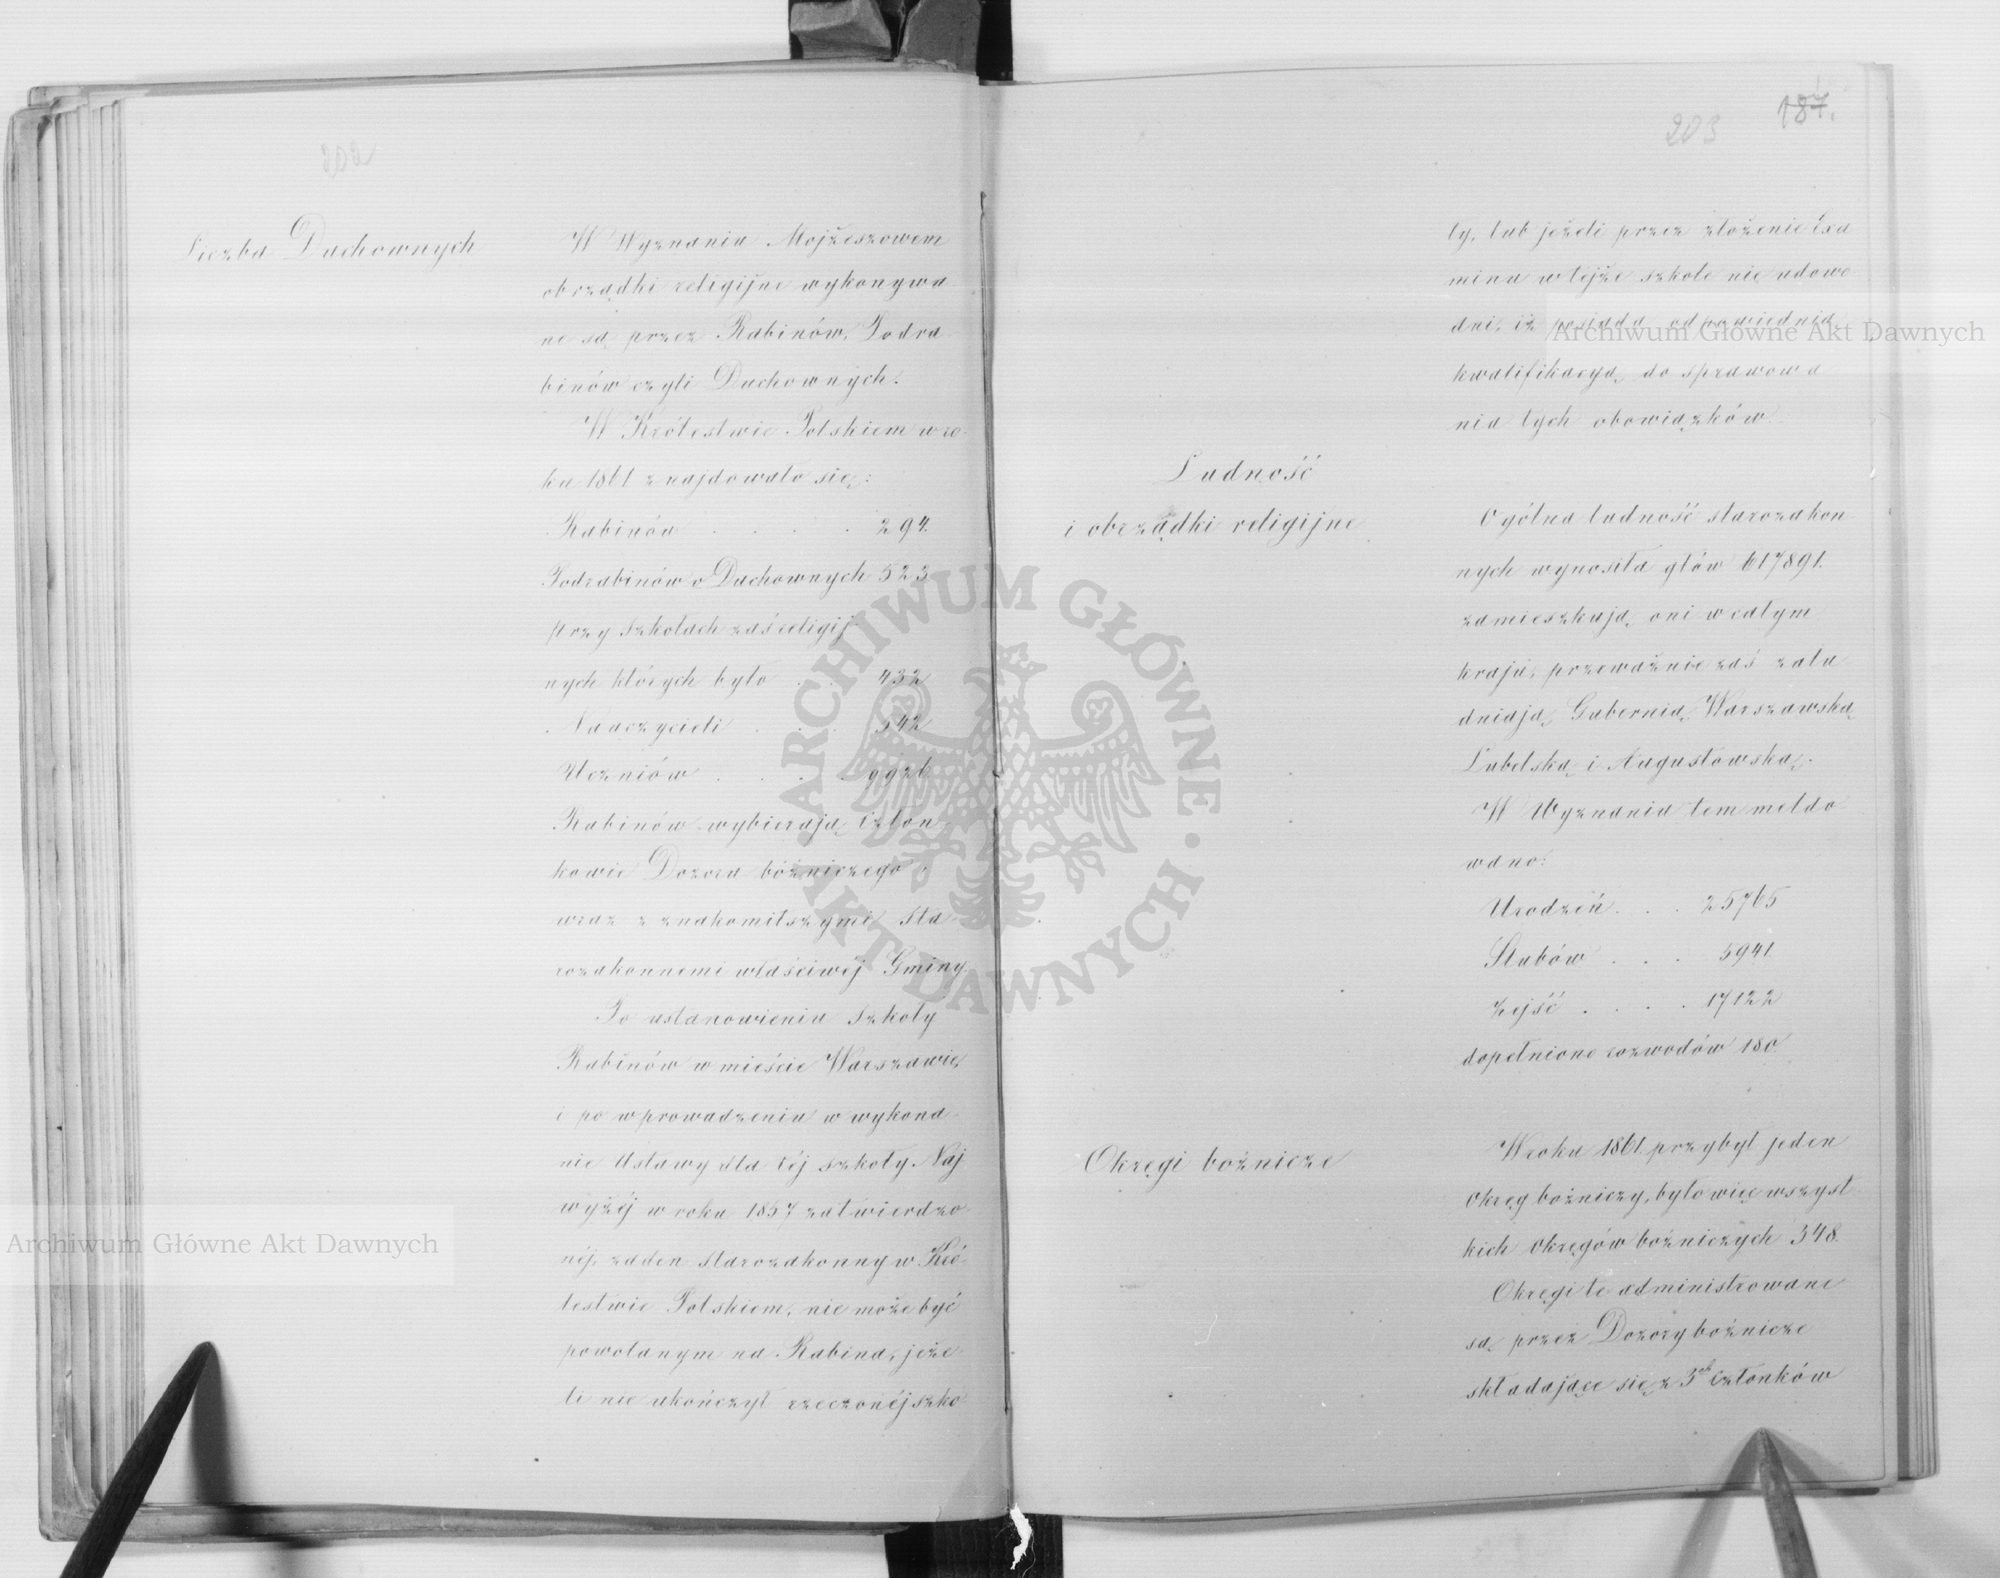 202
Liczba Duchownych
W Wyznaniu Mojżeszowem
obrządki religijne wykonywa
ne są przez Rabinów, Podra
binów czyli Duchownych.
W Królestwie Polskiem w ro
ku 1861 znajdowało się:
Rabinów . . . . 294.
Podrabinów v Duchownych 523
przy szkołach zaś religij
nych których było . . 432
Nauczycieli . . . 542
Uczniów . . . .
Rabinów wybierają Człon
kowie Dozoru bóżniczego
wraz z znakomitszymi sta
rozakonnemi właściwéj Gminy
Po ustanowieniu szkoły
Rabinów w mieście Warszawie,
i po wprowadzeniu w wykona
nie Ustawy dla téj szkoły Naj
wyżéj w roku 1857 zatwierdzo
néj, żaden starozakonny w Kró
lestwie Polskiem, nie może być
powołanym na Rabina, jeże
li nie ukończył rzeczonéj szko
203 187.
ły, lub jeżeli przez złożenie Exa
minu w tejże szkole nie udowo
dni, iż posiada odpowiednią
kwalifikacyą, do sprawowa
nia tych obowiązków.
Ludność
i obrządki religijne
Ogólna ludność starozakon
nych wynosiła głów 617891.
zamieszkują oni w całym
kraju, przeważnie zaś zalu
dniają Gubernią Warszawską
Lubelską i Augustowską.
W Wyznaniu tem meldo
wano:
Urodzeń . . . 25765
Ślubów . . . 5941
Zejść . . . . 17122
dopełniono rozwodów 180.
Okręgi bożnicze
W roku 1861. przybył jeden
Okręg bożniczy, było więc wszyst
kich Okręgów bożniczych 348.
Okręgi te administrowane
są, przez Dozory bożnicze
składające się z 3ch Członków
Archiwum Główne Akt Dawnych
Archiwum Główne Akt Dawnych
ARCHIWUM GŁÓWNE · AKT DAWNYCH ·